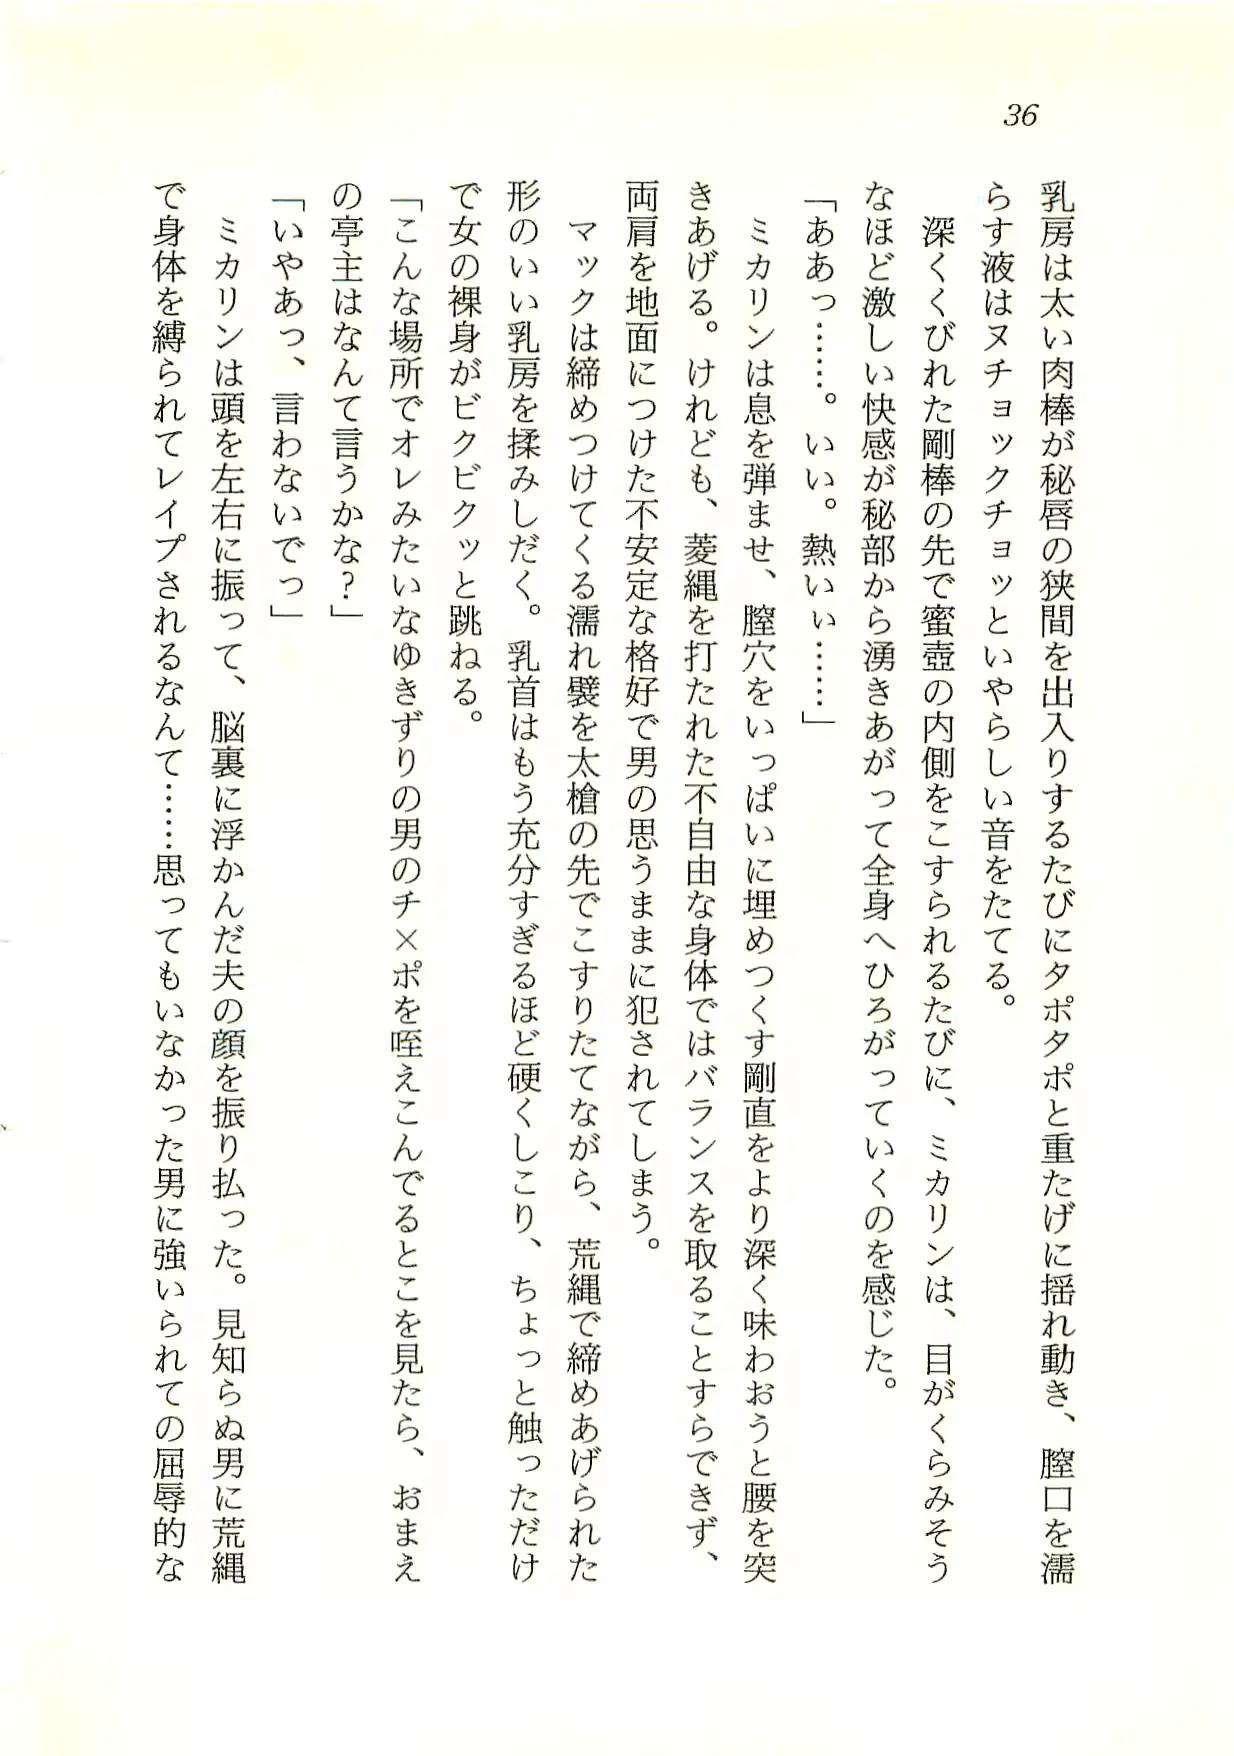 36
乳房は太い肉棒が秘唇の狭間を出入りするたびにタポタポと重たげに揺れ動き、膣口を濡
らす液はヌチョックチョッといやらしい音をたてる。
深くくびれた剛棒の先で蜜壺の内側をこすられるたびに、ミカリンは、目がくらみそう
なほど激しい快感が秘部から湧きあがって全身へひろがっていくのを感じた。
「ああっ……。いい。熱いぃ……」
ミカリンは息を弾ませ、膣穴をいっぱいに埋めつくす剛直をより深く味わおうと腰を突
きあげる。けれども、菱縄を打たれた不自由な身体ではバランスを取ることすらできず、
両肩を地面につけた不安定な格好で男の思うままに犯されてしまう。
マックは締めつけてくる濡れ襞を太槍の先でこすりたてながら、荒縄で締めあげられた
形のいい乳房を揉みしだく。乳首はもう充分すぎるほど硬くしこり、ちょっと触っただけ
で女の裸身がビクビクッと跳ねる。
「こんな場所でオレみたいなゆきずりの男のチ×ポを咥えこんでるとこを見たら、おまえ
の亭主はなんて言うかな?」
「いやあっ、言わないでっ」
ミカリンは頭を左右に振って、脳裏に浮かんだ夫の顔を振り払った。見知らぬ男に荒縄
で身体を縛られてレイプされるなんて……思ってもいなかった男に強いられての屈辱的な